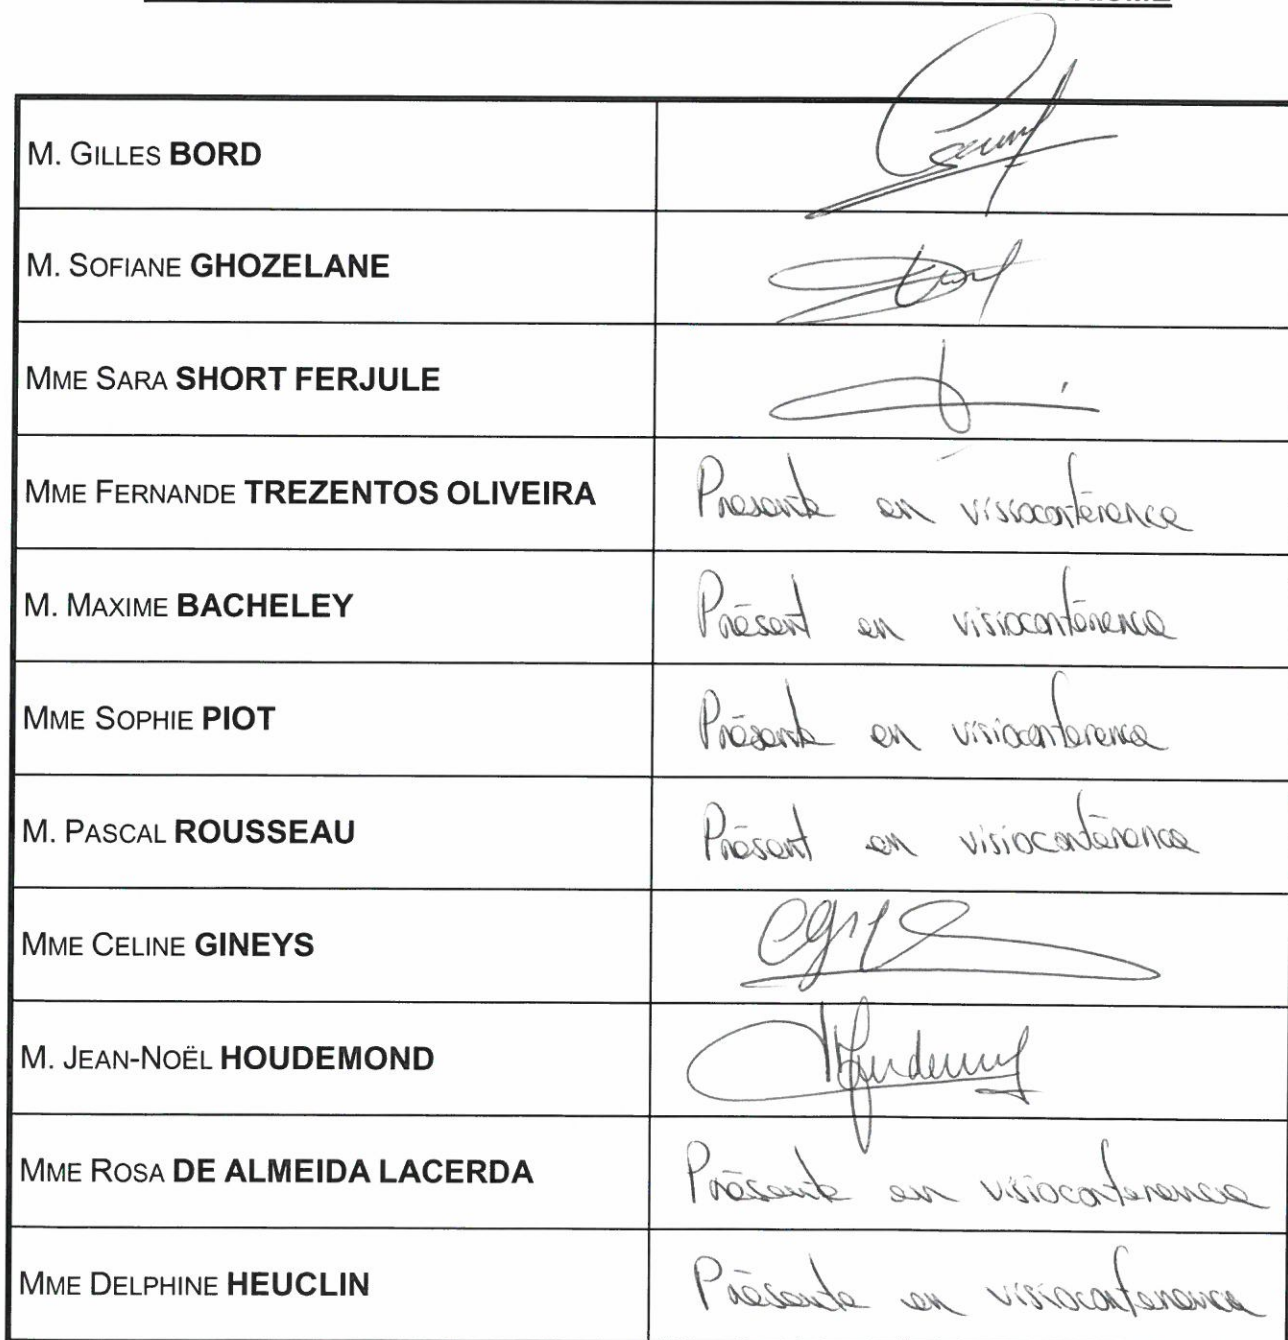 M. GILLES BORD
M. SOFIANE GHOZELANE
MME SARA SHORT FERJULE
MME FERNANDE TREZENTOS OLIVEIRA Présente en visioconférence
M. MAXIME BACHELEY Présent en visioconférence
MME SOPHIE PIOT Présente en visioconférence
M. PASCAL ROUSSEAU Présent en visioconférence
MME CELINE GINEYS
M. JEAN-NOËL HOUDEMOND
MME ROSA DE ALMEIDA LACERDA Présente en visioconférence
MME DELPHINE HEUCLIN Présente en visioconférence